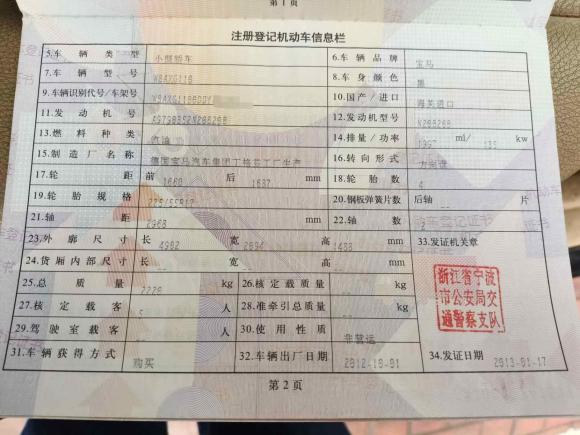 第1页
注册登记机动车信息栏
5.车辆类型 小型轿车 6.车辆品牌 宝马
7.车辆型号 8.车身颜色 黑
9.车辆识别代号/车架号 10.国产/进口 海关进口
11.发动机号 12.发动机型号
13.燃料种类 汽油 14.排量/功率 1997 ml/ kw
15.制造厂名称 德国宝马汽车集团丁格芬工厂生产 16.转向形式 方向盘
17.轮距 前 1660 后 1637 mm 18.轮胎数 4
19.轮胎规格 225/55R17 20.钢板弹簧片数 后轴 片
21.轴距 2968 mm 22.轴数
23.外廓尺寸 长 宽 高 mm 33.发证机关章
24.货厢内部尺寸 长 -- 宽 -- 高 -- mm
25.总质量 kg 26.核定载质量 -- kg
27.核定载客 5 人 28.准牵引总质量 -- kg
29.驾驶室载客 -- 人 30.使用性质 非营运
31.车辆获得方式 购买 32.车辆出厂日期 2012-10-01 34.发证日期 2013-01-17
浙江省宁波
市公安局交
通警察支队
第2页